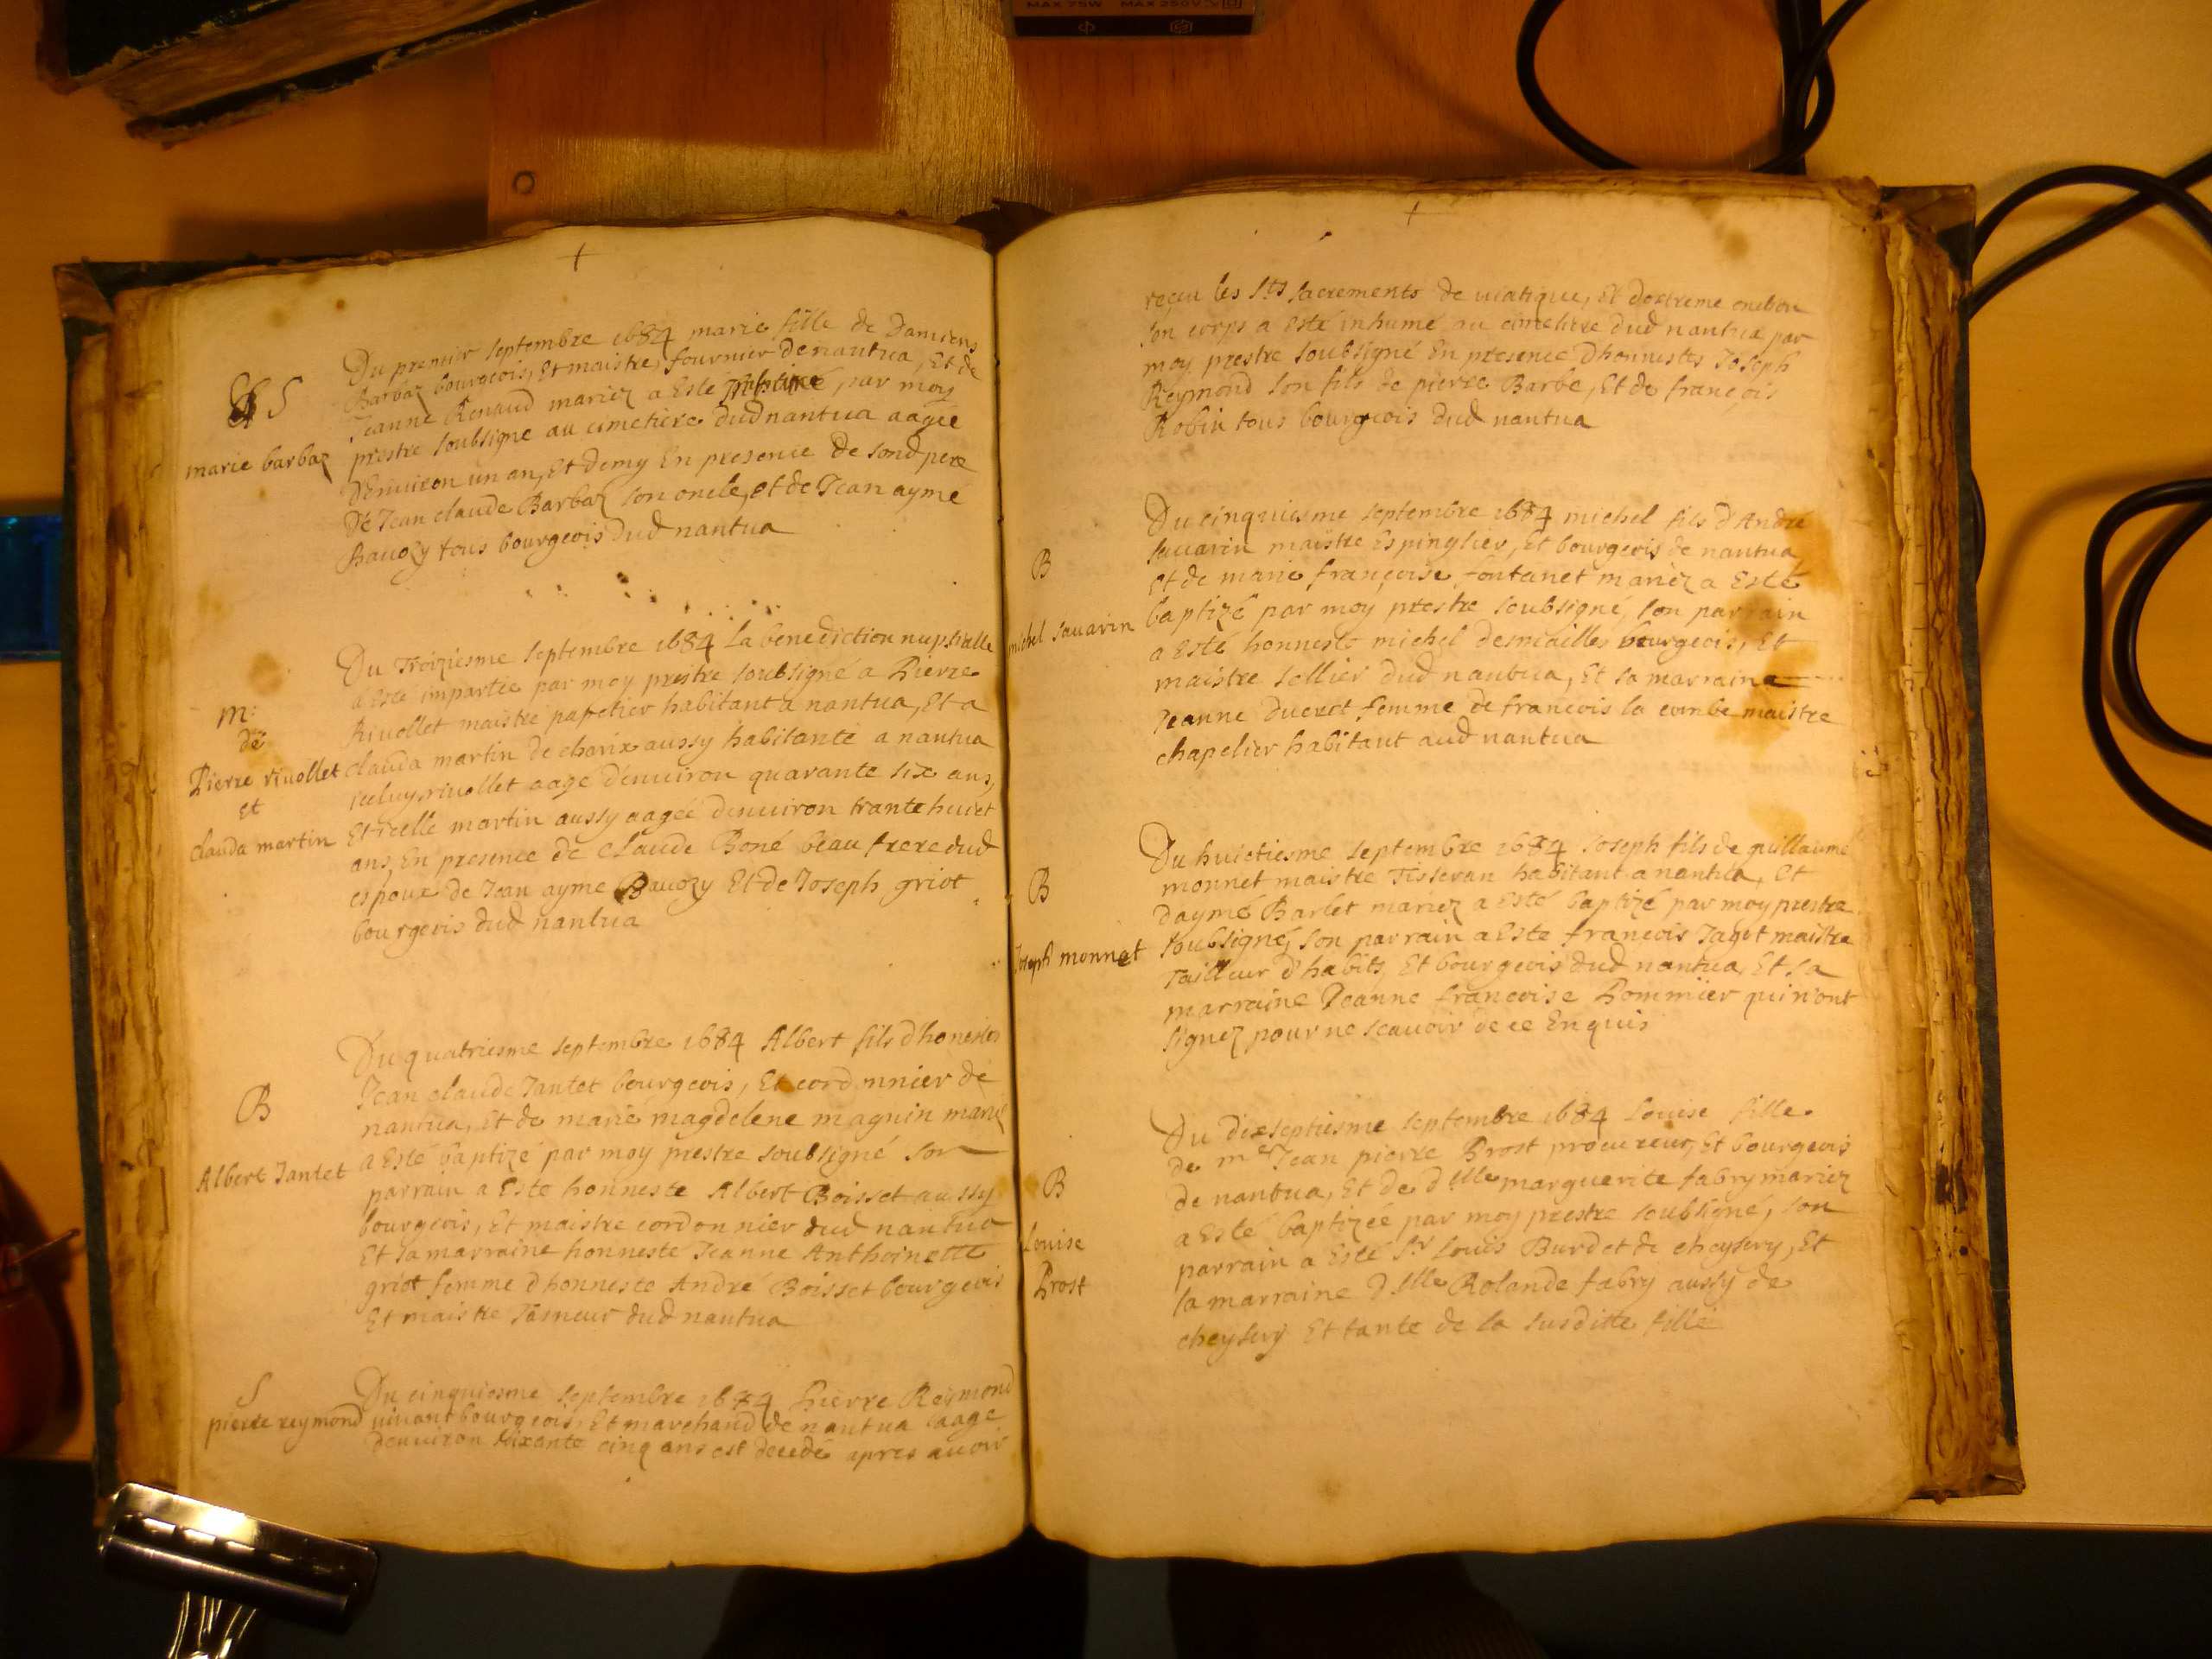 MAX 75W MAX 250V
Du premier septembre 1684 marie fille de Damiens
Barbaz bourgeois, Et maistre fournier de nantua, Et de
Jeanne Renaud mariez a Esté inhumé, par moy
prestre soubsigne au cimetiere dud nantua aagée
D'enuiron un an, Et demy En presence de sond pere
De Jean claude Barbaz son oncle, et de Jean aymé
Bauozy tous bourgeois dud nantua
S
marie barbaz
Du Troiziesme septembre 1684 La benediction nuptialle
a Esté impartie par moy prestre soubsigné a Pierre
Riuollet maistre papetier habitant a nantua, Et a
clauda martin de charix aussy habitante a nantua
iceluy riuollet aage d'enuiron quarante six ans,
Et icelle martin aussy aagée denuiron trante huict
ans, En presence de claude Boné beau frere dud
espoux de Jean ayme Bauozy Et de Joseph griot
bourgeois dud nantua
m:
de
Pierre riuollet
et
clauda martin
Du quatriesme septembre 1684 Albert fils d'honestes
Jean claude Jantet bourgeois, Et cordonnier de
nantua, Et de marie magdelene magnin mariez
a Esté baptizé par moy prestre soubsigné son
parrain a Esté honneste Albert Boisset aussy
bourgeois, Et maistre cordonnier dud nantua
Et sa marraine honneste Jeanne Anthoinette
griot femme d'honneste André Boisset bourgeois
Et maistre Taineur dud nantua
B
Albert Jantet
Du cinquiesme septembre 1684 Pierre Reymond
viuant bourgeois, Et marchand de nantua laage
denuiron soixante cinq ans est decedé apres auoir
S
pierre reymond
receu les sts sacrements de viatique, Et dextreme onction
son corps a Esté inhumé au cimetiere dud nantua par
moy prestre soubsigné En presence d'honnestes Joseph
Reymond son fils de pierre Barbe, Et de françois
Robin tous bourgeois dud nantua
Du cinquiesme septembre 1684 michel fils d'André
sauarin maistre Espinglier, Et bourgeois de nantua
Et de marie françoise fontanet mariez a Esté
baptizé par moy prestre soubsigné, son parrain
a Esté honneste michel desmailles bourgeois, Et
maistre sellier dud nantua, Et sa marraine
Jeanne Ducret femme de francois la combe maistre
chapelier habitant aud nantua
B
michel sauarin
Du huictiesme septembre 1684 Joseph fils de guillaume
monnet maistre Tisseran habitant a nantua, Et
dayme Barlet mariez a Esté baptizé par moy prestre
soubsigné, son parrain a Este francois Jagot maistre
Tailleur d'habits, Et bourgeois dud nantua, Et sa
marraine Jeanne francoise Pommier qui n'ont
signez pour ne scauoir de ce Enquis
B
Joseph monnet
Du dixseptiesme septembre 1684 Louise fille
de me Jean pierre Brost procureur, Et bourgeois
de nantua, Et de dlle marguerite fabry mariez
a Esté baptizée par moy prestre soubsigné, son
parrain a Esté Sr Louis Burdet de cheysery, Et
la marraine dlle Rolande fabry aussy de
cheysery Et tante de la susditte fille
B
Louise
Brost